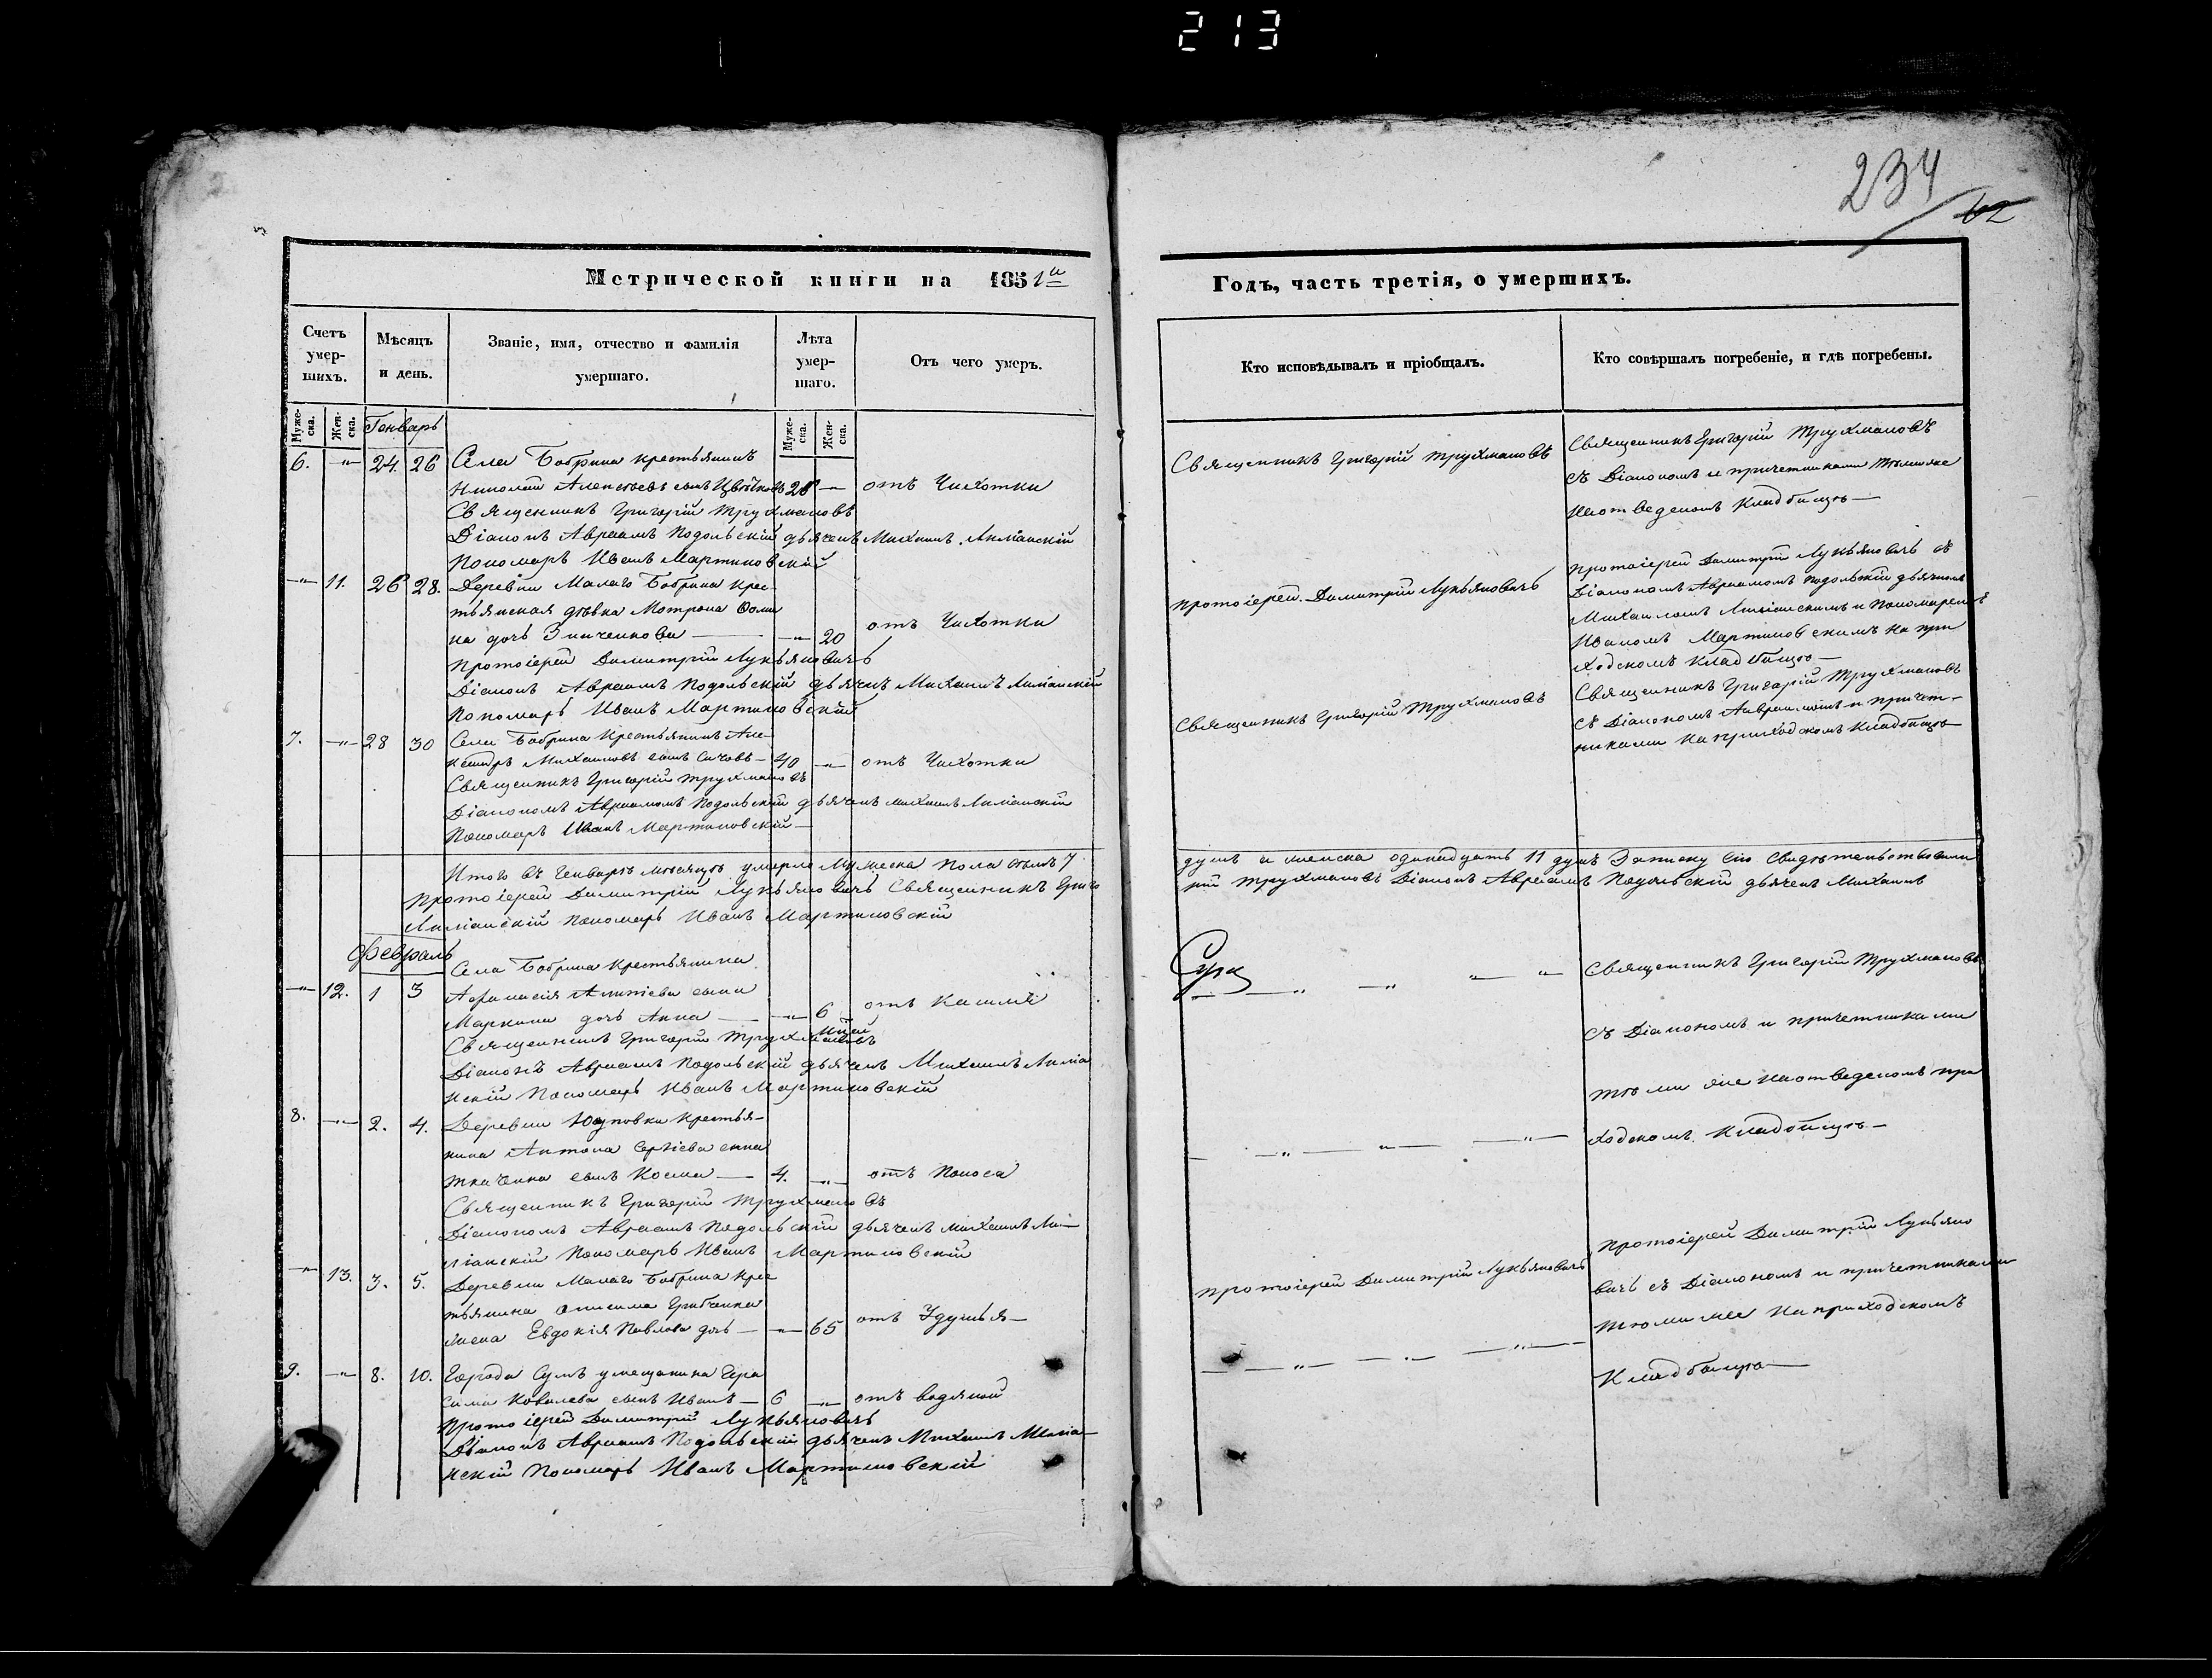 213
234
62
Метрической книги на 1851й
Счетъ умер-шихъ.
Мѣсяцъ и день.
Званіе, имя, отчество и фамилія умершаго.
Лѣта умер-шаго.
Отъ чего умеръ.
Муже-ска.
Жен-ска.
Генварь
Муже-ска.
Жен-ска.
6. —"— 24. 26 Села Бобрика крестьянинъ
Николай Алексѣевъ сынъ Цвѣтковъ 28 —"— отъ Чихотки
Священникъ Григорій Трухмановъ
Діаконъ Авраамъ Подольскій дьячекъ Михаилъ
Пономарь Иванъ Мартиновскій
—"— 11. 26 28. Деревни Малаго Бобрика крес-
тьянская дѣвка Мотрона Ѳоми
на дочь Зинченкова — —"— 20 отъ Чихотки
Протоіерей Димитрій Лукьяновичъ
Діаконъ Авраамъ Подольскій дьячекъ Михаилъ
Пономарь Иванъ Мартиновскій
7. —"— 28 30 Села Бобрика Крестьянинъ Але-
Михаиловъ сынъ Сичовъ — 40 —"— отъ Чихотки
Священникъ Григорій Трухмановъ
Діакономъ Авраамомъ Подольскій дьячекъ Михаилъ
Пономарь Иванъ Мартиновскій —
Итого въ Генварѣ мѣсяцѣ умерло Мужеска пола семь 7
Протоіерей Димитрій Лукьяновичъ Священникъ Григо
Пономарь Иванъ Мартиновскій
Февраль
Села Бобрика Крестьянина
—"— 12. 1 3 Афанасія сына
дочь Анна — —"— 6 отъ Кашлю
Священникъ Григорій Трухмановъ
Діаконъ Авраамъ Подольскій дьячекъ Михаилъ
нскій Пономарь Иванъ Мартиновскій
8. —"— 2. 4. Деревни Крестья-
нина Антона Сергіева сына
Ткаченка сынъ Косма — 4. —"— отъ Поноса
Священникъ Григорій Трухмановъ
Діакономъ Авраамъ Подольскій дьячекъ Михаилъ
Пономарь Иванъ Мартиновскій
—"— 13. 3. 5. Деревни Малаго Бобрика Крес
тьянина Онисима Грибченка
жена Евдокія Павлова дочь — —"— 65 отъ Удушья —
9. —"— 8. 10. Города Сумъ умещанина Гера
сима Ковалева сынъ Иванъ — 6 —"— отъ водяной
Протоіерей Димитрій Лукьяновичъ
Діаконъ Авраамъ Подольскій дьячекъ Михаилъ
нскій Пономарь Иванъ Мартиновскій
Годъ, часть третія, о умершихъ.
Кто исповѣдывалъ и пріобщалъ.
Кто совѣршалъ погребеніе, и гдѣ погребены.
Священникъ Григорій Трухмановъ
Священникъ Григорій Трухмановъ
съ Діакономъ и причетниками тѣми же
на отведеномъ Кладбищѣ —
Протоіерей Димитрій Лукьяновичъ
Протоіерей Димитрій Лукьяновичъ съ
Діакономъ Авраамомъ Подольскій дьячкомъ
Михаиломъ и Пономаремъ
Иваномъ Мартиновскимъ на при
ходскомъ кладбищѣ —
Священникъ Григорій Трухмановъ
Священникъ Григорій Трухмановъ
съ Діакономъ Авраамомъ и причет-
никами на приходскомъ Кладбищѣ
душъ и женска одинадцать 11 душъ Записку сію Свидѣтельствовали
рій Трухмановъ Діаконъ Авраамъ Подольскій дьячекъ Михаилъ
Священникъ Григорій Трухмановъ
съ Діакономъ и причетниками
тѣми же на отведеномъ при
ходскомъ Кладбищѣ —
Протоіерей Димитрій Лукьяновичъ
Протоіерей Димитрій Лукьяно
вичъ съ Діакономъ и причетниками
тѣми же на приходскомъ
Кладбищѣ —